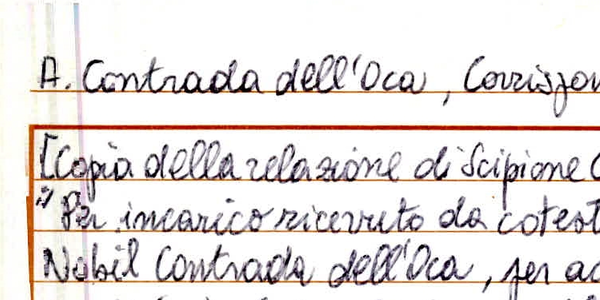 A. Contrada dell'Oca, Corrispon
[Copia della relazione di Scipione C
"Per incarico ricevuto da cotest
Nobil Contrada dell'Oca, per ac